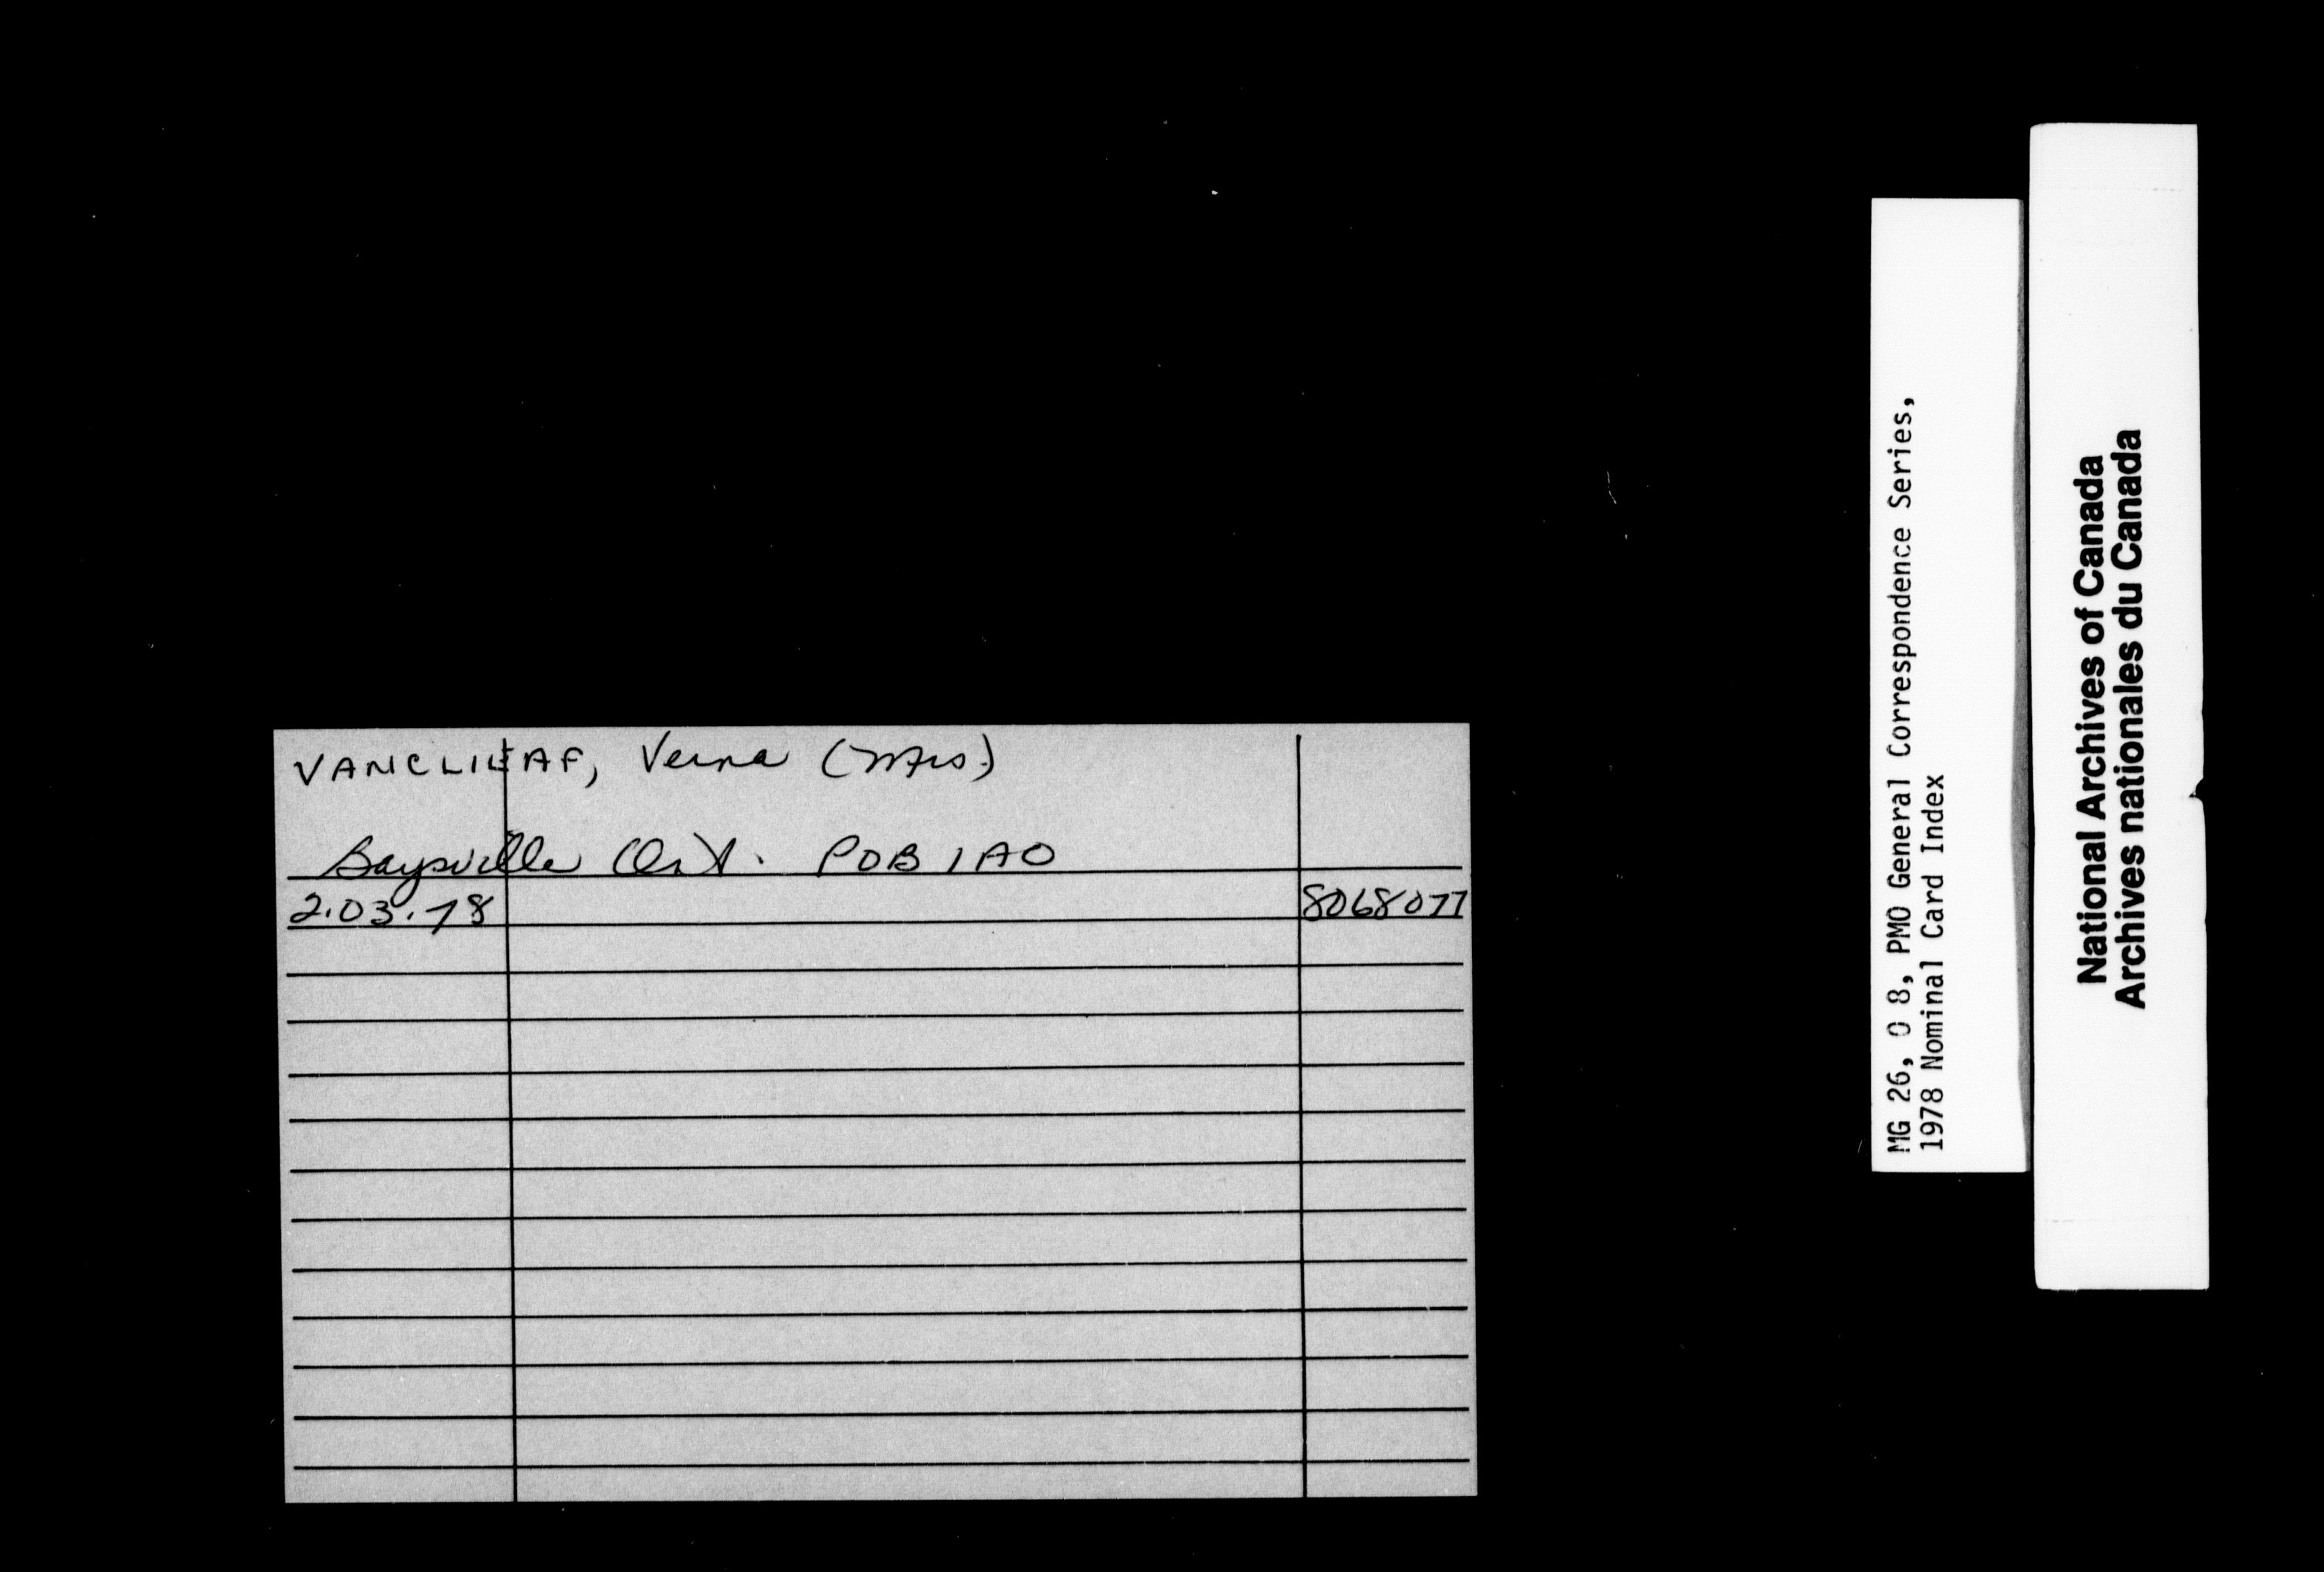 VANCLIEAF, Verna (Mrs.)
Baysville Ont. POB 1A0
2.03.78 8068077
MG 26, O 8, PMO General Correspondence Series,
1978 Nominal Card Index
National Archives of Canada
Archives nationales du Canada